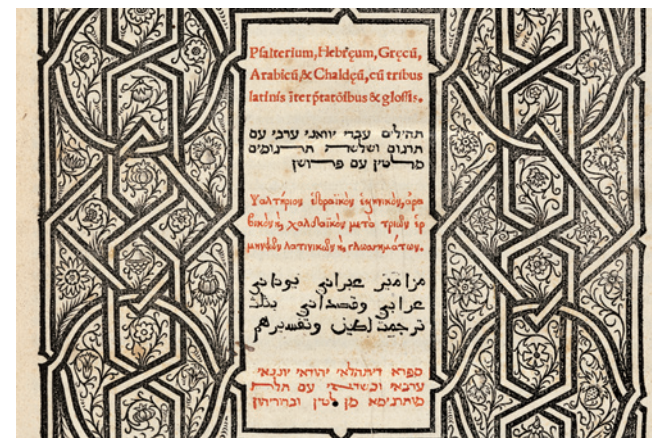 Pſalterium, Hebręum, Gręcū,
Arabicū, & Chaldęū, cū tribus
latinis ĩterp̃tatõibus & gloſſis.
תהילים עברי יוואני ערבי עם
תרגום ושלשה תרגומים
מלטין עם פרושן
Ψαλτήριον ἑβραϊκὸν ἑλληνικὸν, ἀρα
βικὸν ϗ χαλδαϊκὸν μετὰ τριῶν ἑρ
μηνιῶν λατινικῶν ϗ γλωσημάτων.
مزامير عبراني يوناني
عرابي وقصداني بثلث
ترجمت لطين وتفسيرهم
ספרא דיתהלאי יהודאי יונאי
ערבאי וכשדאי עם תלת
מתרגמא מן לטין